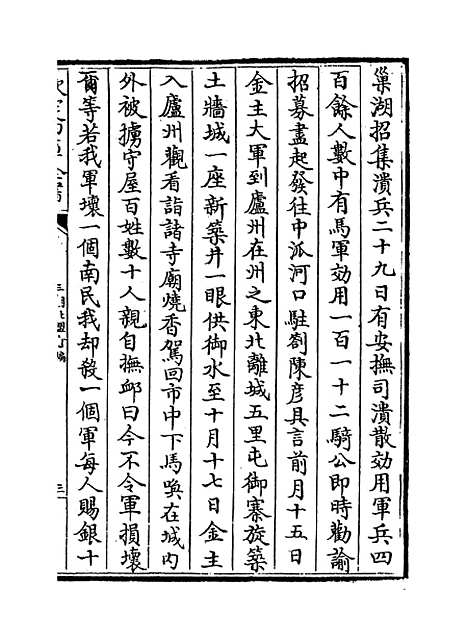 巢湖招集潰兵二十九日有安撫司潰散効用軍兵四
百餘人數中有馬軍効用一百一十二騎公即時勸諭
招募盡起發往中派河口駐劄陳彦具言前月十五日
金主大軍到廬州在州之東北離城五里屯御寨旋築
土牆城一座新築井一眼供御水至十月十七日金主
入廬州觀看詣諸寺廟燒香駕回市中下馬喚在城内
外被擄守屋百姓數十人親自撫邺曰今不令軍損壞
爾等若我軍壞一個南民我却殺一個軍每人賜銀十
欽定四庫全書
三朝北盟會編
三